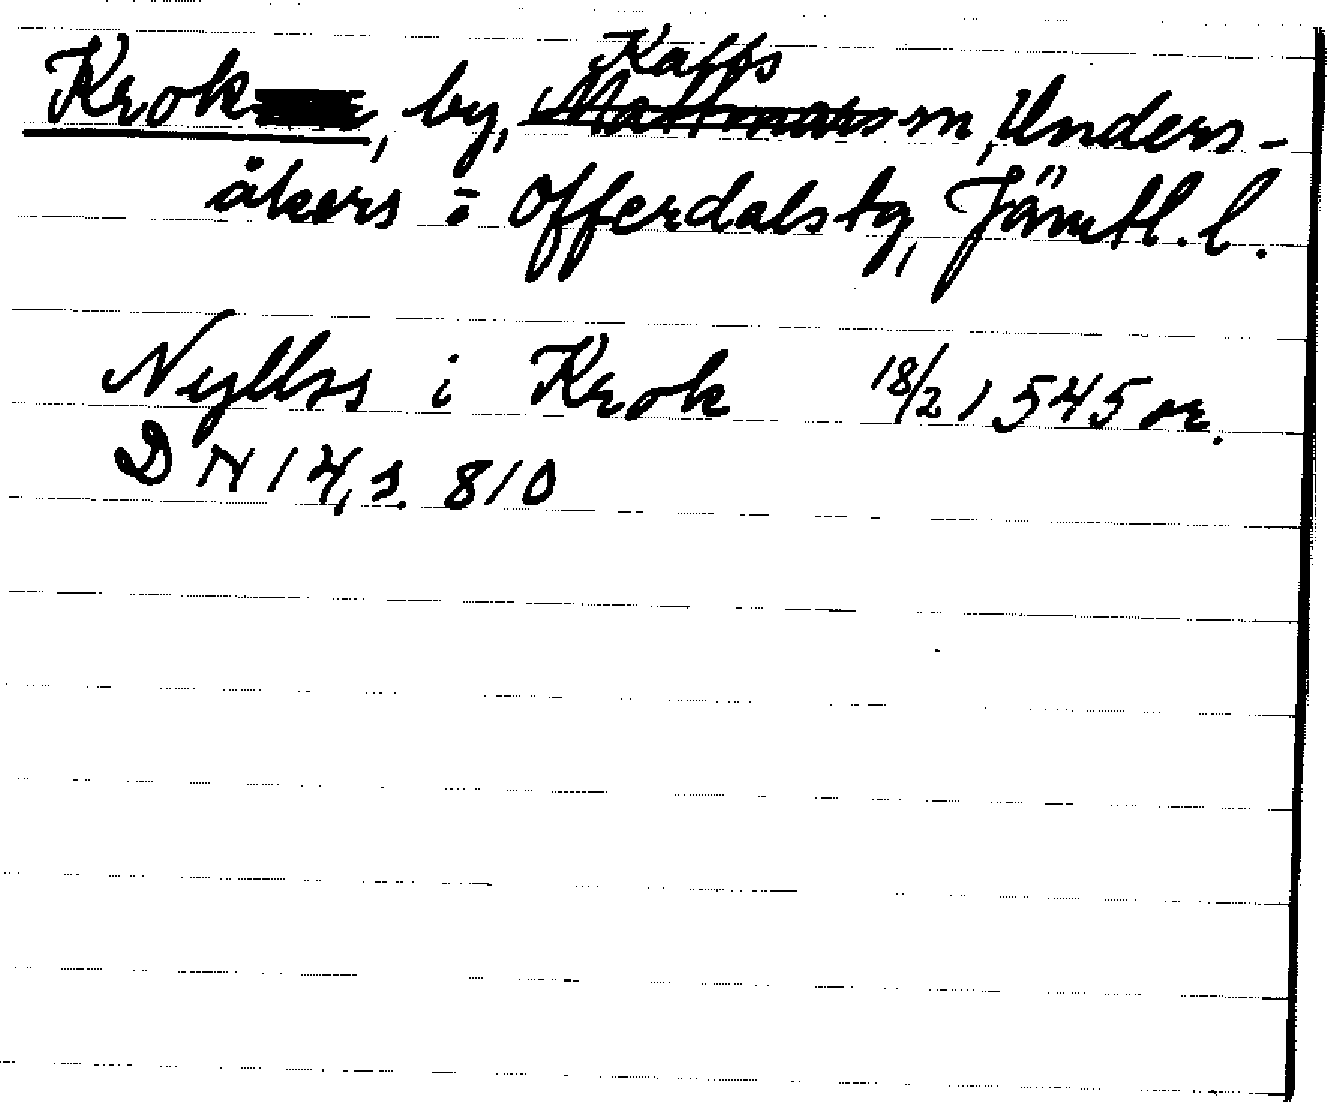 Kalls
Krok, by, Mattmars sn, Unders-
åkers o Offerdals tg, Jämtl. l.
Nyllss i Krok 18/2 1545 or.
DN 14, s. 810